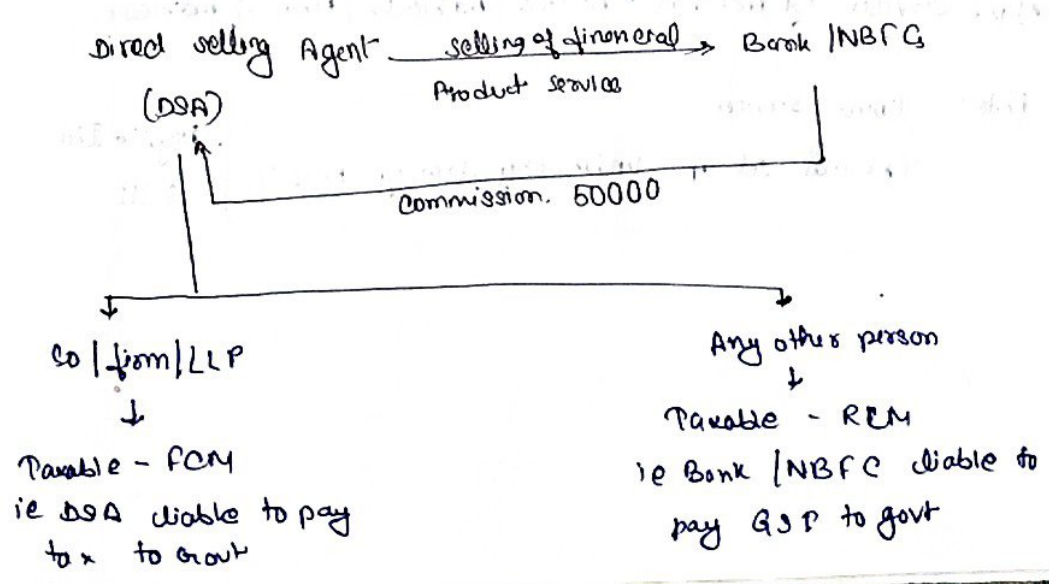 Direct selling Agent selling of financial Bank / NBFC
(DSA) Product services
Commission. 50000
Co / firm / LLP
Taxable - FCM
ie DSA liable to pay
tax to Govt
Any other person
Taxable - RCM
ie Bank / NBFC liable to
pay GST to govt